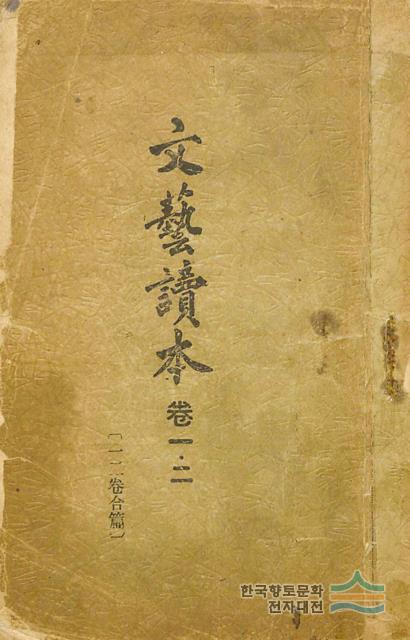 文藝讀本 卷一·二
〔一·二卷合篇〕
한국향토문화
전자대전